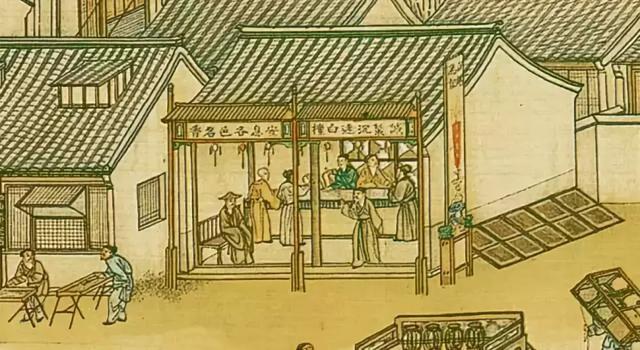 誠製沉速白檀安息各色名香